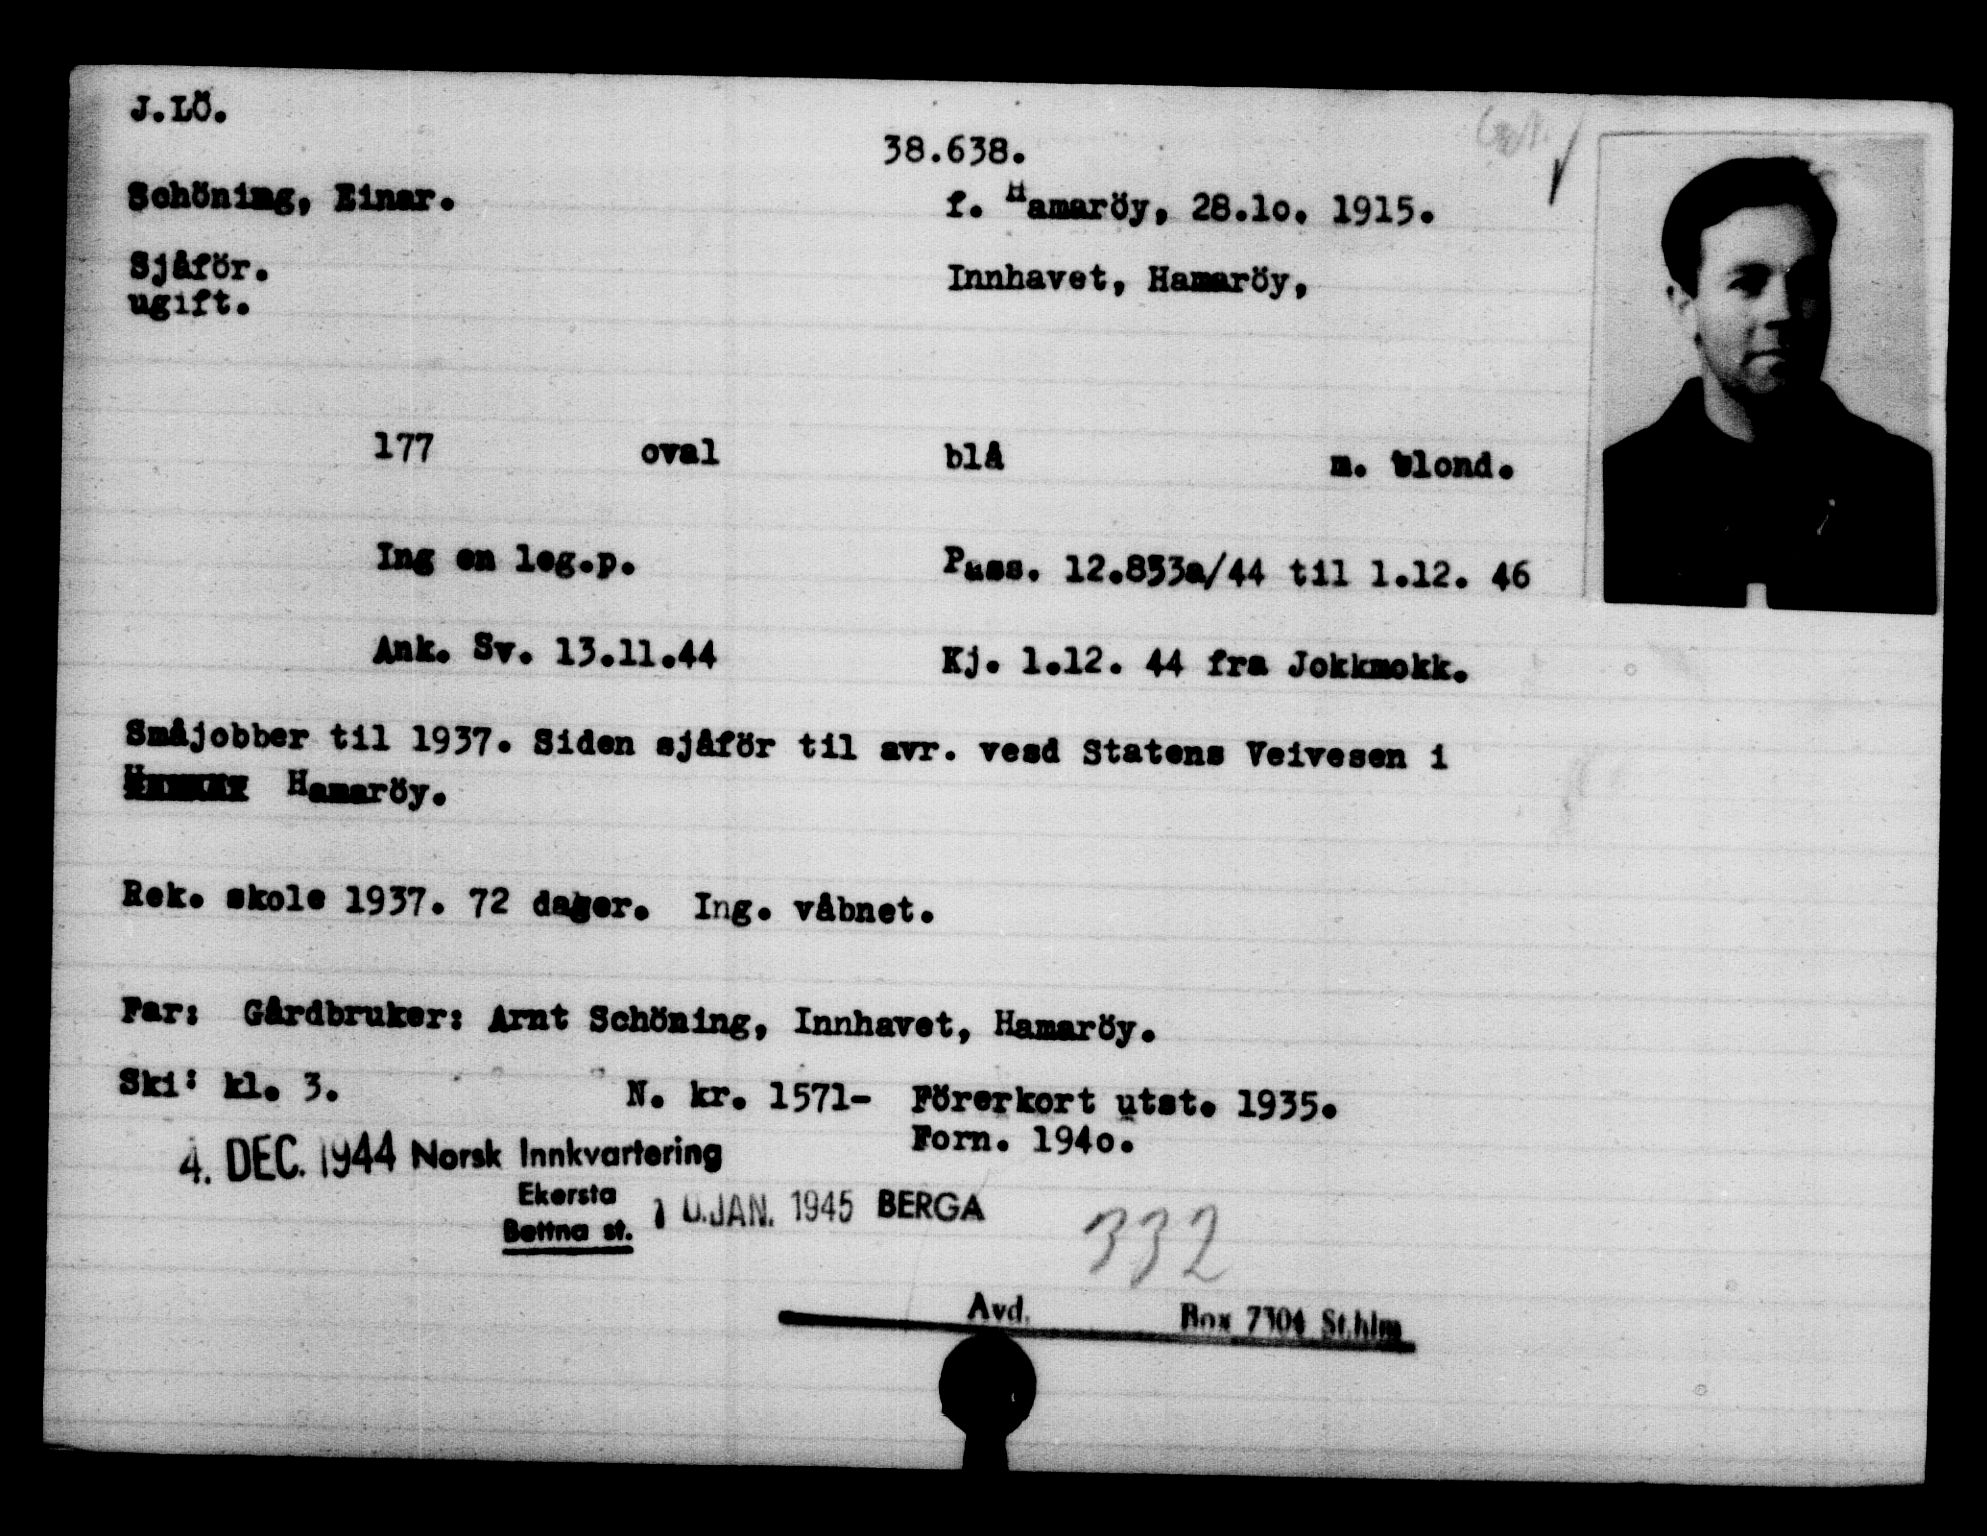 J.LÖ.
38.638.
Schöning, Einar.
f. Hamaröy, 28.10. 1915.
Sjåför.
Innhavet, Hamaröy,
ugift.
177 oval blå m. blond.
Ing en leg.p.
Pass. 12.853a/44 til 1.12. 46
Ank. Sv. 13.11.44
Kj. 1.12. 44 fra Jokkmokk.
Småjobber til 1937. Siden sjåför til avr. vesd Statens Veivesen i
Hamaröy.
Rek. skole 1937. 72 dager. Ing. våbnet.
Far: Gårdbruker: Arnt Schöning, Innhavet, Hamaröy.
Ski: kl. 3. N. kr. 1571- Förerkort utst. 1935.
Forn. 1940.
4. DEC. 1944 Norsk Innkvartering
Ekersta
Bettna st.
10.JAN. 1945 BERGA
332
Avd. Box 7304 St.hlm